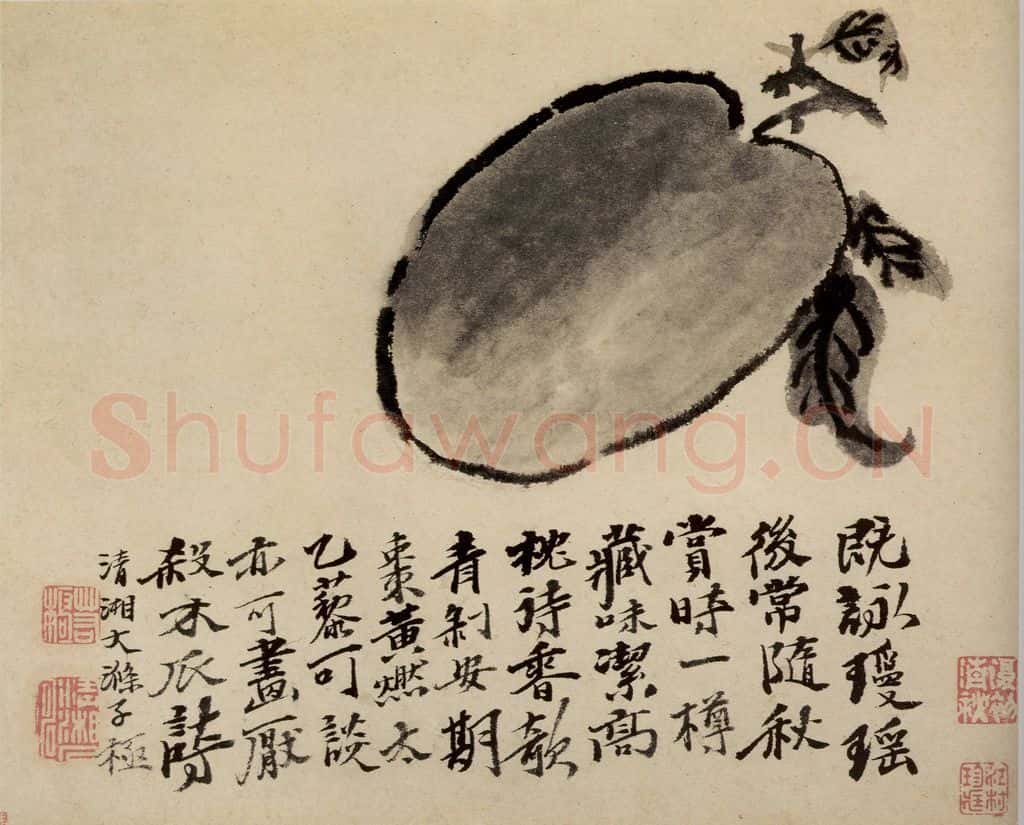 Shufawang.CN
既詠瓊瑶
後常隨秋
賞時一樽
藏味潔高
枕待香欹
青剝安期
棗黃燃太
乙藜可談
亦可畫厭
殺木瓜詩
清湘大滌子極